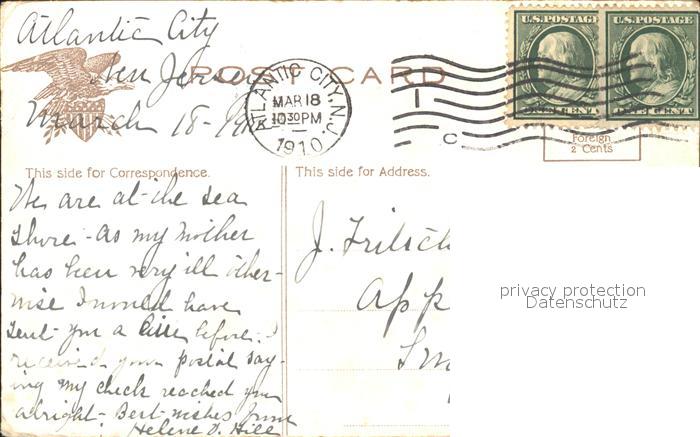 Atlantic City
New Jersey
March 18-1910
POST CARD
ATLANTIC CITY, N.J.
MAR 18
10 30 PM
1910
1
C
U.S. POSTAGE U.S. POSTAGE
ONE CENT ONE CENT
Foreign
2 Cents
This side for Correspondence.
This side for Address.
We are at the sea
shore - as my mother
has been very ill other-
wise I would have
sent you a line before. I
received your postal say-
ing my check reached you
alright - Best wishes from
Helene V. Hill
J. Fritsch
App
Sm
privacy protection
Datenschutz